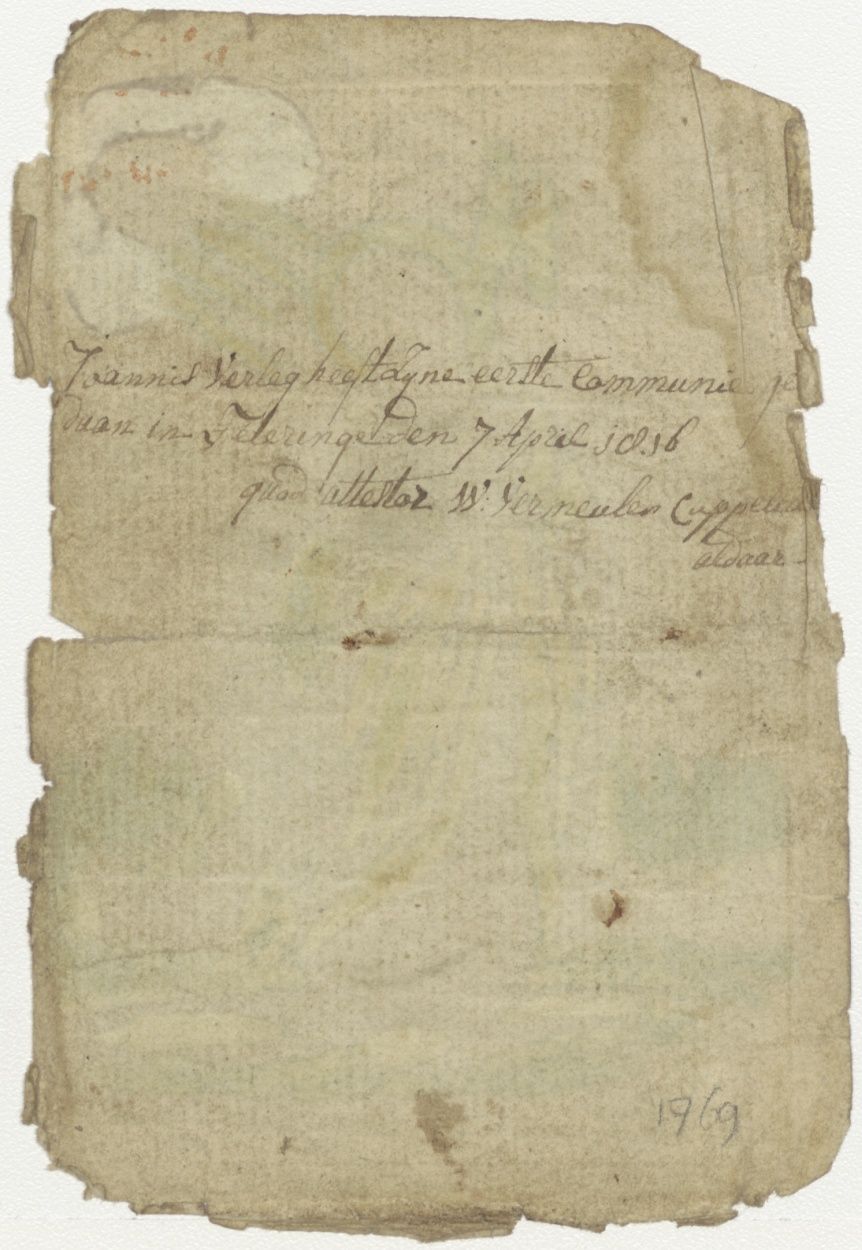 Joannis Verleg heeft Zyne eerste Communie ge
daan in Teteringe den 7 April 1816
quod attestor W: Vermeulen Cappellaan
aldaar
1969